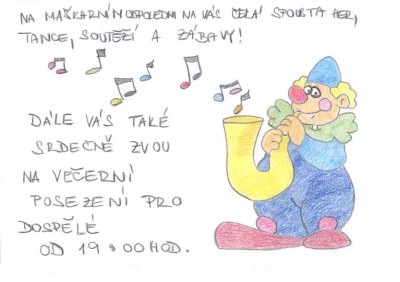 NA MAŠKARNÍM ODPOLEDNI NA VÁS ČEKÁ SPOUSTA HER,
TANCE, SOUTĚŽÍ A ZÁBAVY!
DÁLE VÁS TAKÉ
SRDEČNĚ ZVOU
NA VEČERNÍ
POSEZENÍ PRO
DOSPĚLÉ
OD 19.00 HOD.